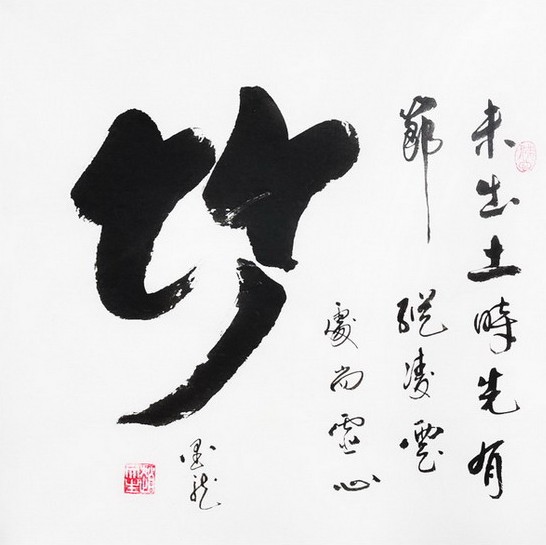 未出土時先有
節縱凌雲
處尚虛心
竹
墨龍